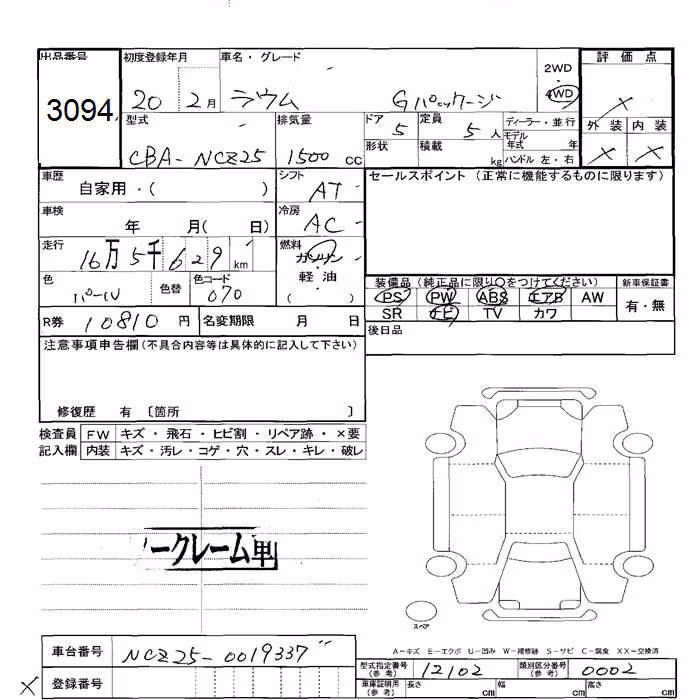 出品番号 初度登録年月 車名・グレード 評価点
3094 20 2月 ラウム Gパッケージ 2WD 4WD ×
型式 排気量 ドア 定員 ディーラー・並行 外装 内装
CBA-NCZ25 1500cc 5 5人 モデル年式 年 × ×
形状 積載 kg ハンドル 左・右
車歴 自家用・( ) シフト AT セールスポイント (正常に機能するものに限ります)
車検 年 月( 日) 冷房 AC
走行 16万5千629km 燃料 ガソリン・軽油 ( )
色 パール 色替 色コード 070
装備品 (純正品に限り〇をつけてください) 新車保証書
PS PW ABS エアB AW 有・無
SR ナビ TV カワ
R券 10810円 名変期限 月 日 後日品
注意事項申告欄(不具合内容等は具体的に記入して下さい)
修復歴 有 〔箇所 〕
検査員 FW キズ・飛石・ヒビ割・リペア跡・×要
記入欄 内装 キズ・汚レ・コゲ・穴・スレ・キレ・破レ
ークレーム
スペア
A-キズ E-エクボ U-凹み W-補修跡 S-サビ C-腐食 XX-交換済
車台番号 NCZ25-0019337
型式指定番号(参考) 12102 類別区分番号(参考) 0002
× 登録番号
車庫証明用(参考) 長さ cm 幅 cm 高さ cm